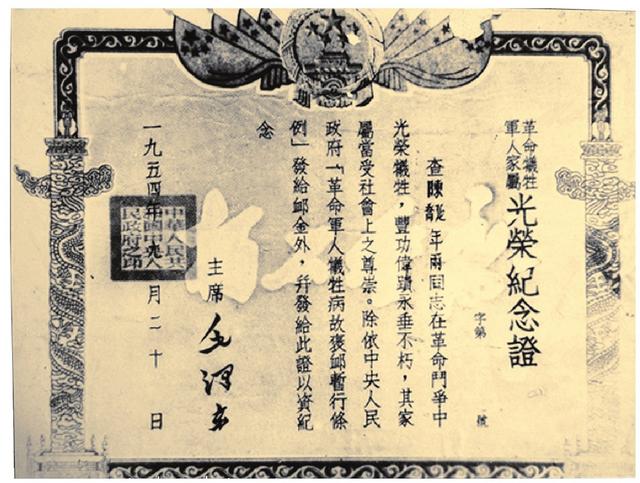 革命犧牲
軍人家屬
光榮紀念證
字第 號
查陳年兩同志在革命鬥爭中
光榮犧牲,豐功偉蹟永垂不朽,其家
屬當受社會上之尊崇。除依中央人民
政府「革命軍人犧牲病故褒卹暫行條
例」發給卹金外,并發給此證以資紀
念
主席 毛澤東
中華人民共
和國中央人
民政府之印
一九五四年 月二十日